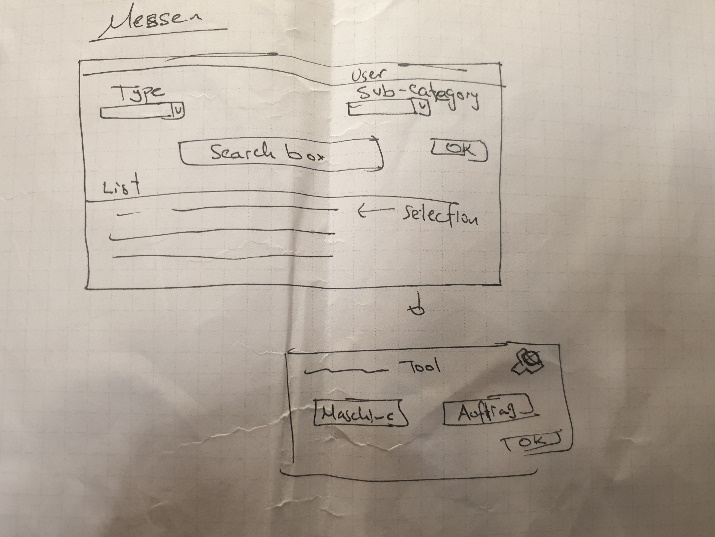 Messen
User
Type
Sub-category
V
V
Search box
OK
List
Selection
Tool
Maschine
Auftrag
OK